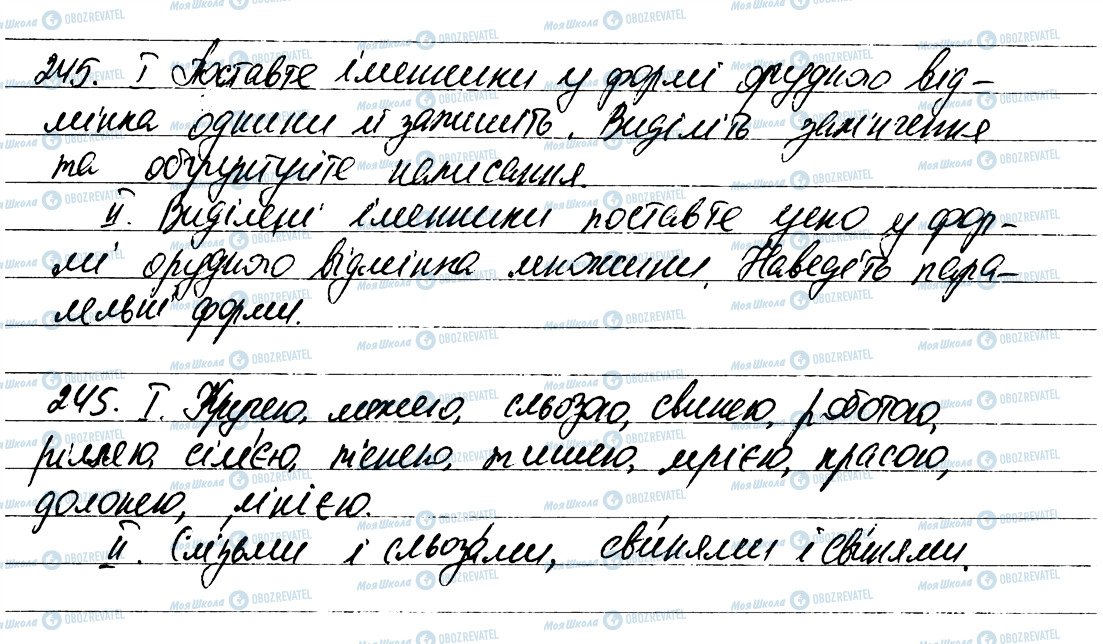 245. I Поставте іменники у формі орудного від-
мінка однини й запишіть. Виділіть закінчення
та обґрунтуйте написання.
II. Виділені іменники поставте усно у фор-
мі орудного відмінка множини. Наведіть пара-
лельні форми.
245. I. Кручею, межею, сльозою, свинею, роботою,
ріллею, сім'єю, тишею, мрією, красою,
долонею, лінією.
II. Слізьми і сльозами, свиньми і свинями.